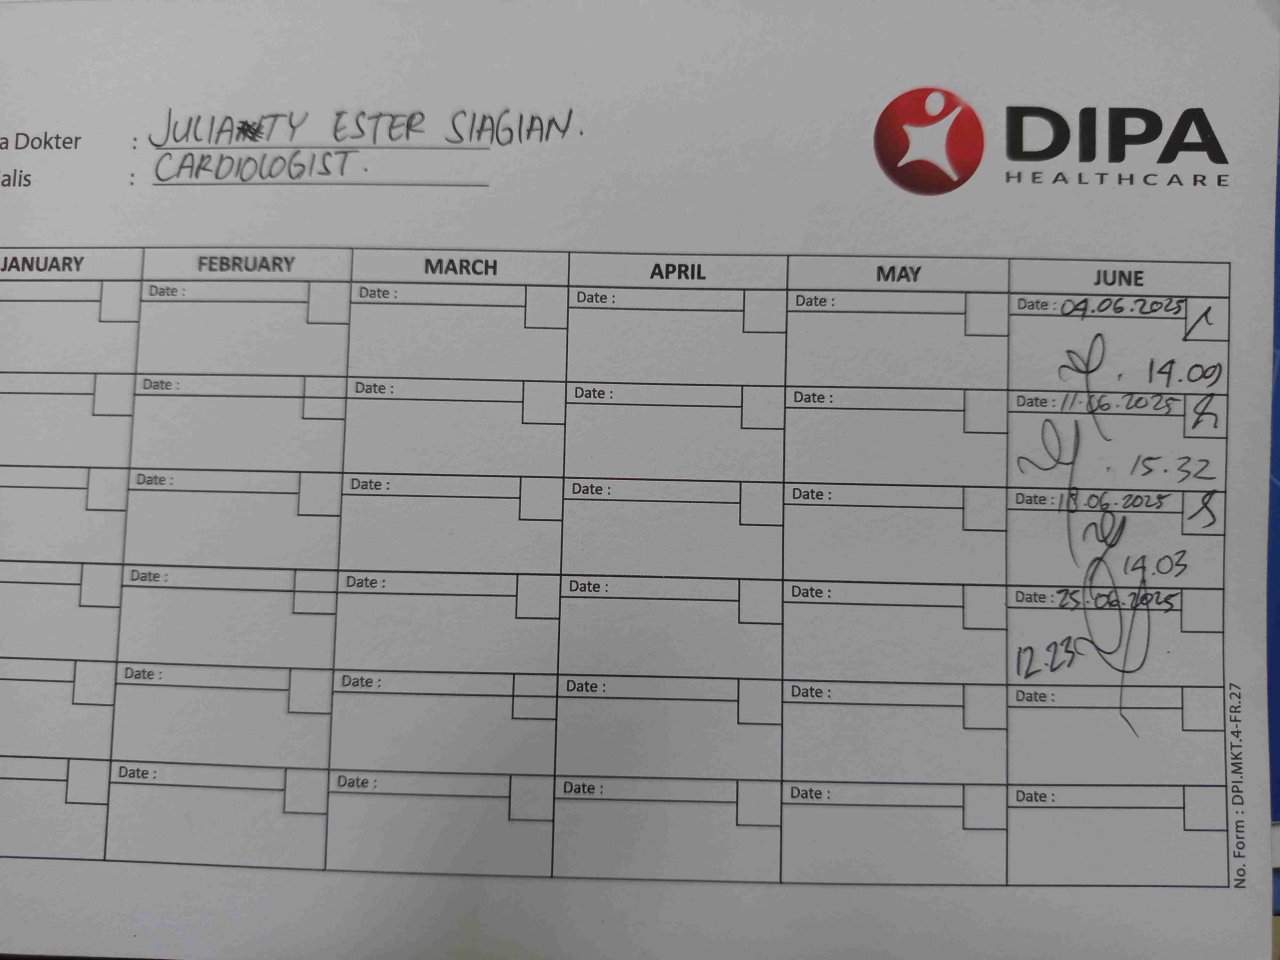 a Dokter : JULIATY ESTER SIAGIAN.
alis : CARDIOLOGIST.
DIPA
HEALTHCARE
JANUARY FEBRUARY MARCH APRIL MAY JUNE
Date : Date : Date : Date : Date : 04.06.2025
14.09
Date : Date : Date : Date : Date : 11.06.2025
15.32
Date : Date : Date : Date : Date : 18.06.2025
14.03
Date : Date : Date : Date : Date : 25.06.2025
12.23
Date : Date : Date : Date : Date :
Date : Date : Date : Date : Date :
No. Form : DPI.MKT.4-FR.27